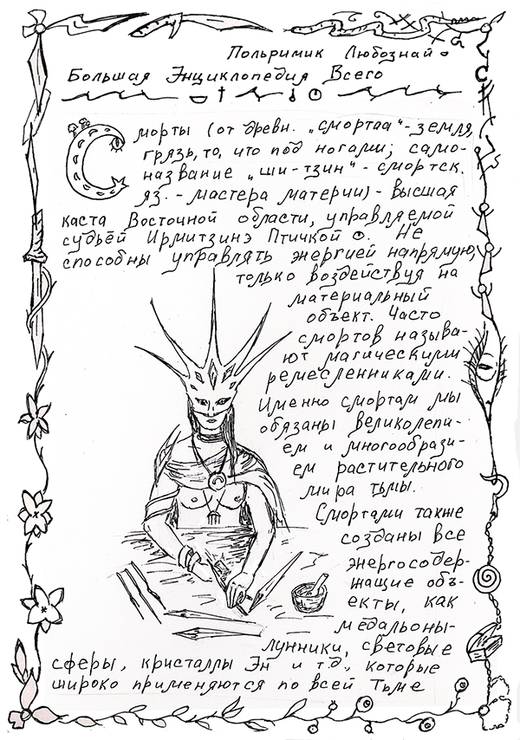 Польримик Любознай
Большая Энциклопедия Всего
Сморты (от древн. „смортаа“ - земля,
грязь, то, что под ногами; само-
название „ши-тзин“ - смортск.
яз. - мастера материи) - высшая
каста Восточной области, управляемой
судьёй Ирмитзинэ Птичкой. Не
способны управлять энергией напрямую,
только воздействуя на
материальный
объект. Часто
смортов называ-
ют магическими
ремесленниками.
Именно смортам мы
обязаны великолепи-
ем и многообрази-
ем растительного
мира тьмы.
Смортами также
созданы все
энергосодер-
жащие объ-
екты, как
медальоны-
лунники, световые
сферы, кристаллы Эн и т.д., которые
широко применяются по всей Тьме